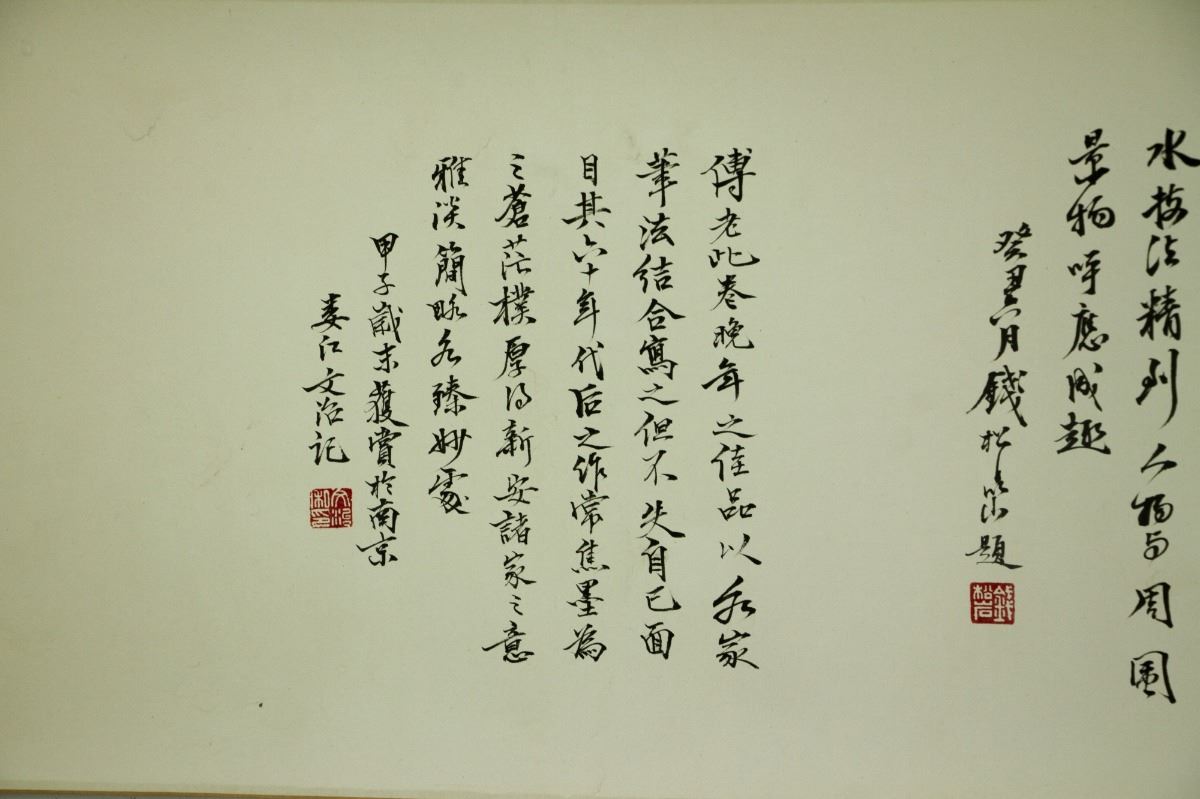 水按法精到人物与周围
景物呼應成趣
癸丑六月錢松喦題
錢松喦
傅老此卷晚年之佳品以各家
筆法结合寫之但不失自己面
目其六十年代后之作常焦墨為
之蒼茫樸厚得新安諸家之意
雅淡簡略各臻妙處
甲子歲末獲賞於南京
婁江文治记